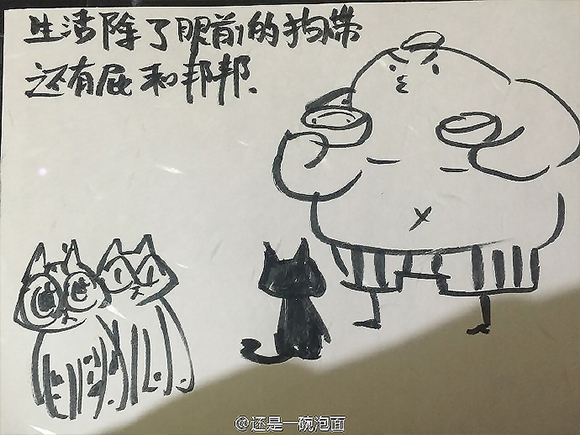 生活除了眼前的狗带
还有屁和邦邦.
@还是一碗泡面